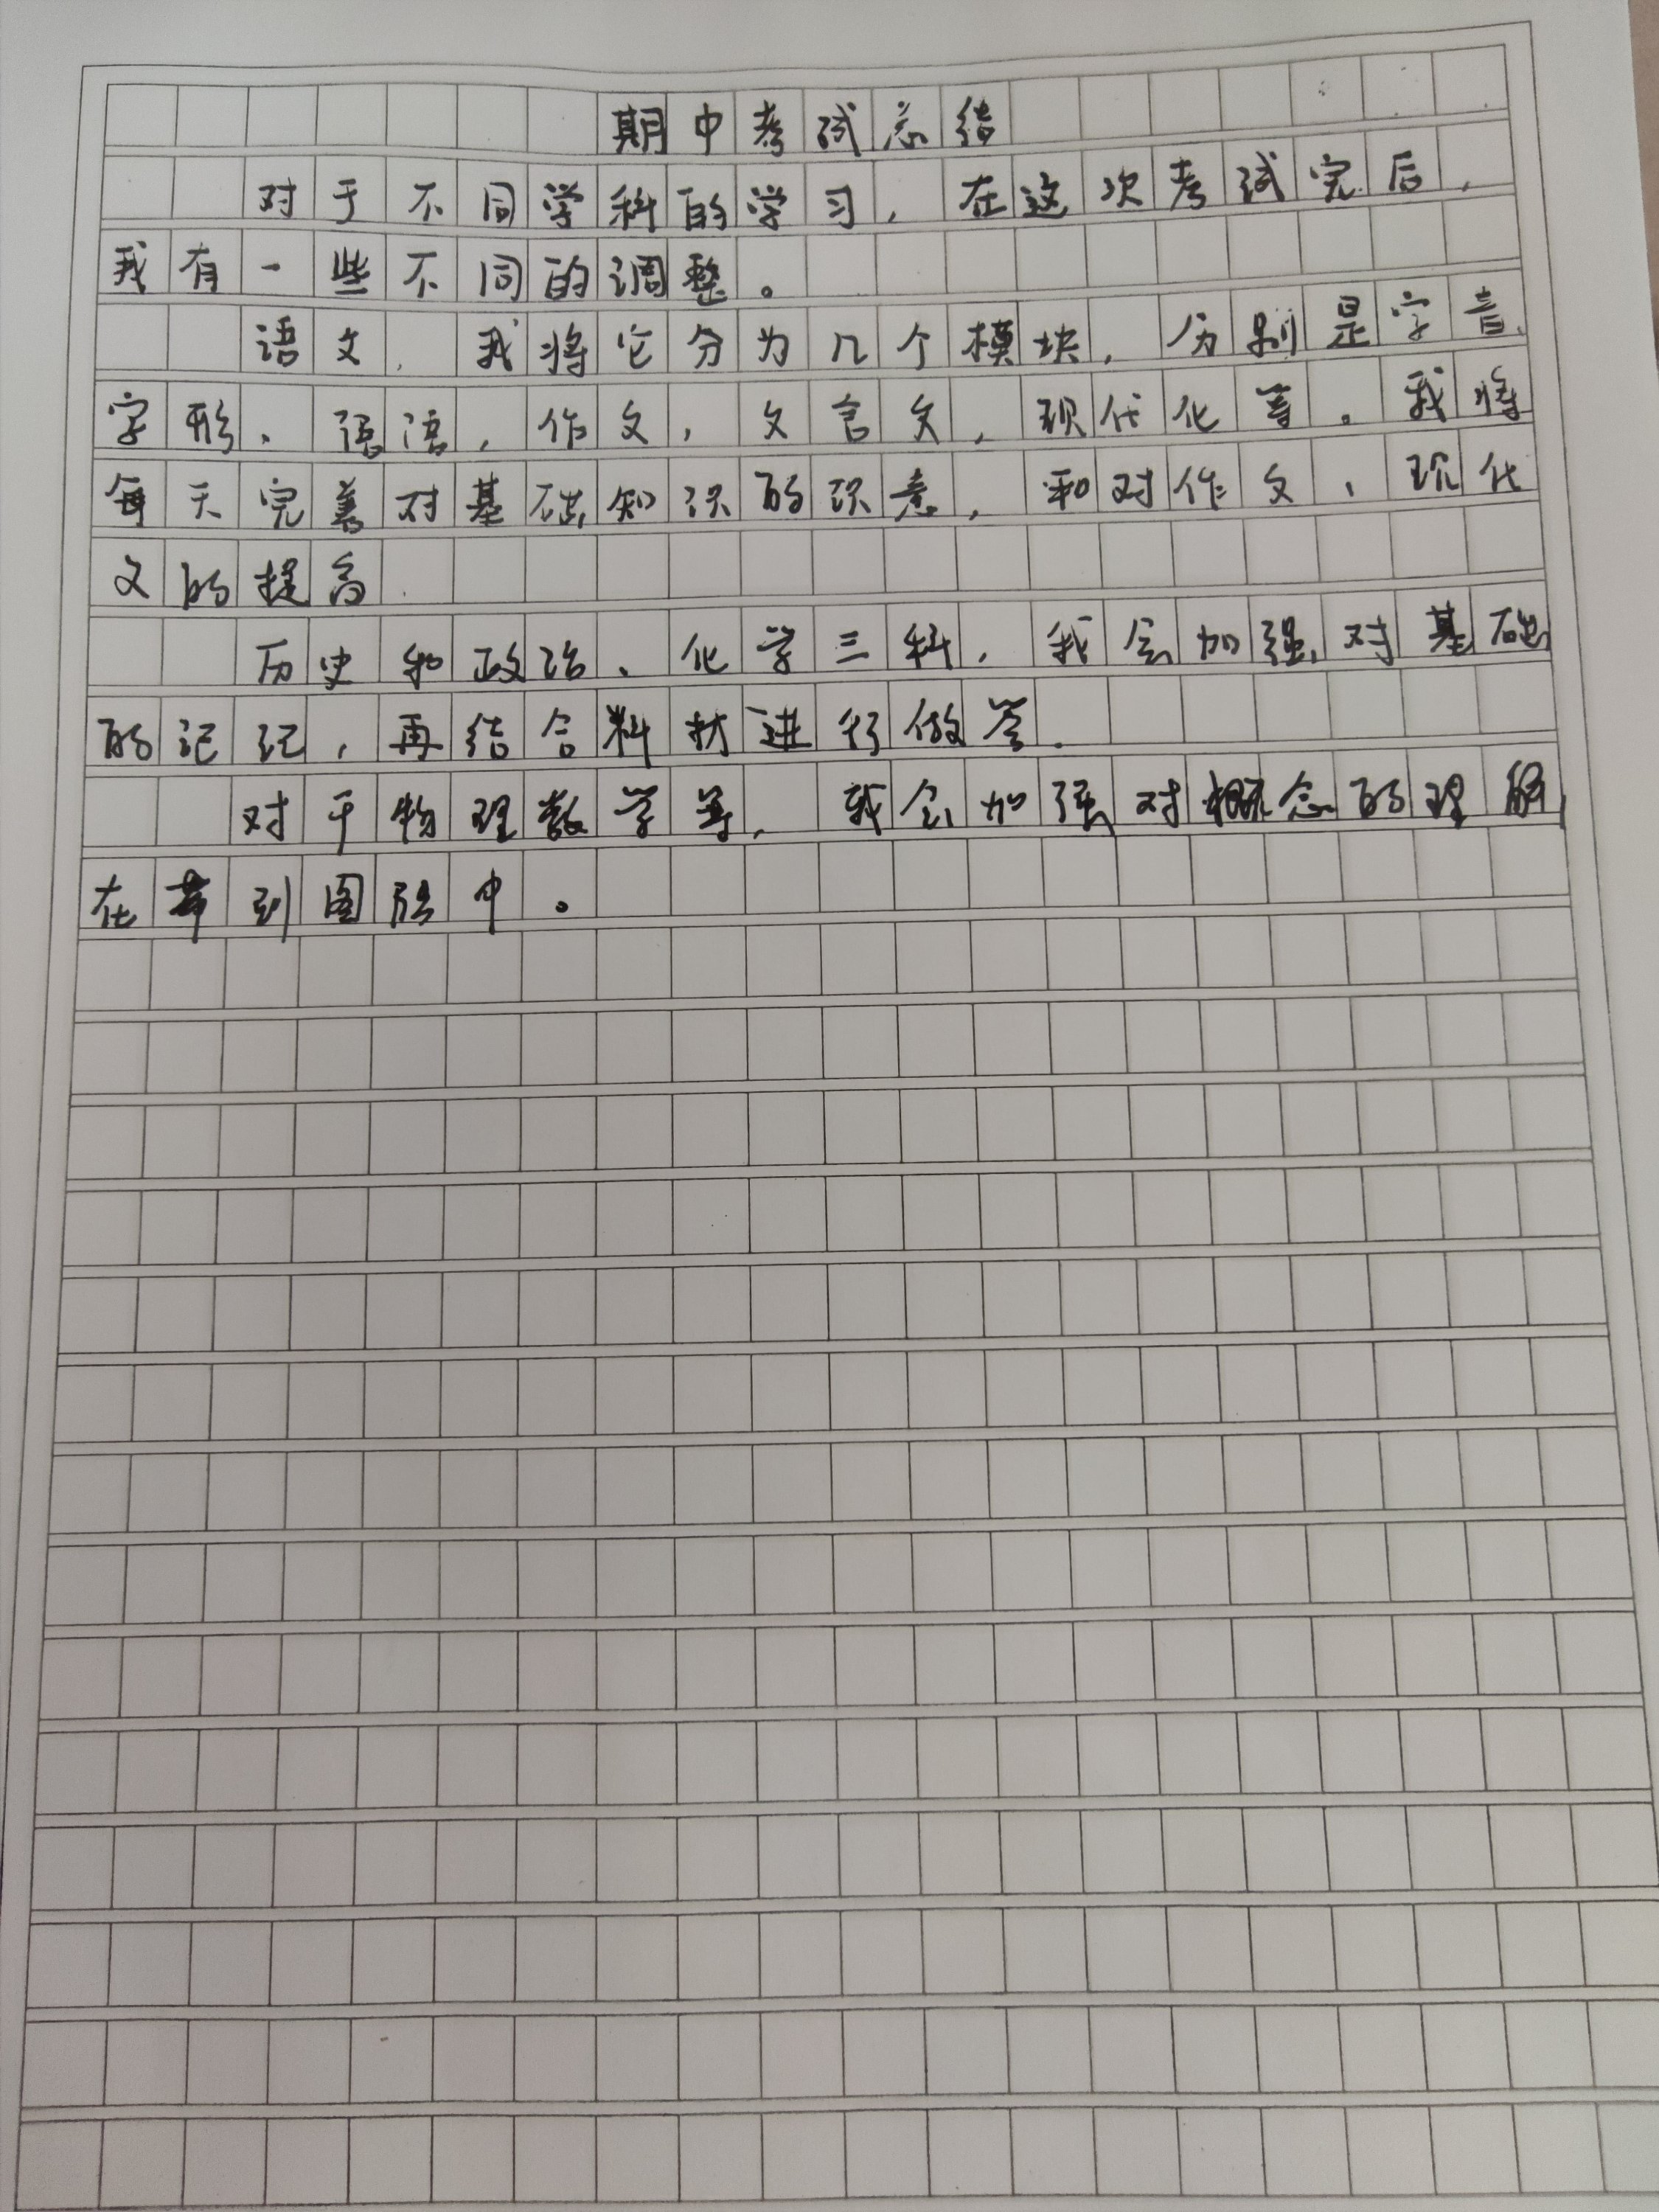 期中考试总结
对于不同学科的学习，在这次考试完后，
我有一些不同的调整。
语文，我将它分为几个模块，分别是字音、
字形、语，作文，文言文，现代化等。我将
每天完善对基础知识的识意，和对作文，现代
文的提高.
历史和政治、化学三科，我会加强对基础
的记记，再结合料材进行做答.
对于物理数学等，我会加强对概念的理解，
在带到图形中。